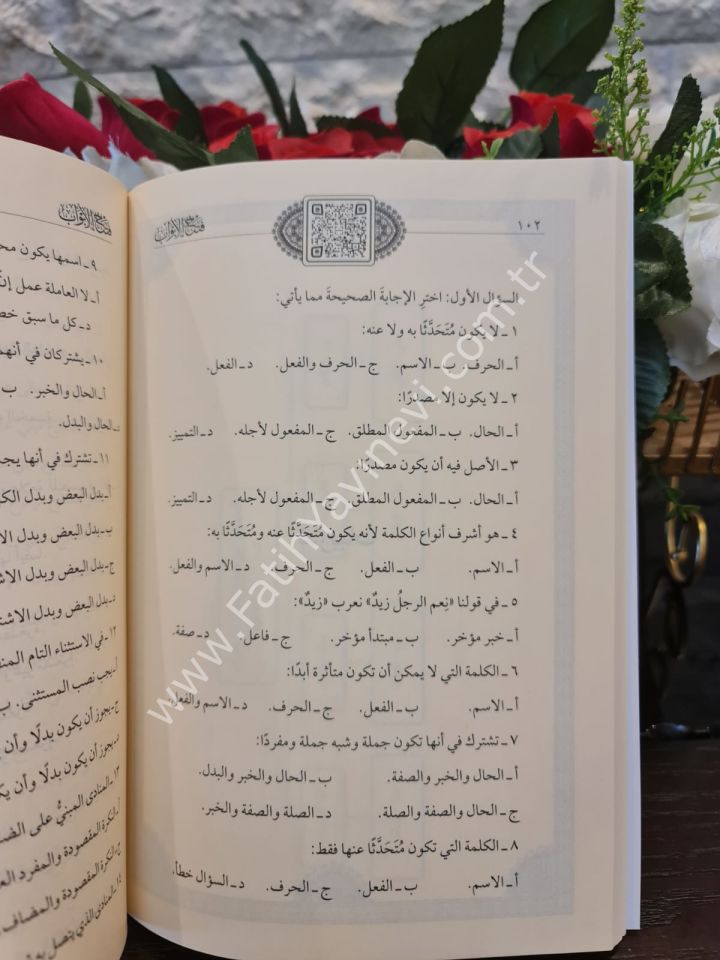 ١٠٢
مفتاح الأبواب
السؤال الأول: اختر الإجابةَ الصحيحةَ مما يأتي:
١ ـ لا يكون مُتَحَدَّثًا به ولا عنه:
أ ـ الحرف. ب ـ الاسم. ج ـ الحرف والفعل. د ـ الفعل.
٢ ـ لا يكون إلا مصدرًا:
أ ـ الحال. ب ـ المفعول المطلق. ج ـ المفعول لأجله. د ـ التمييز.
٣ ـ الأصل فيه أن يكون مصدرًا:
أ ـ الحال. ب ـ المفعول المطلق. ج ـ المفعول لأجله. د ـ التمييز.
٤ ـ هو أشرف أنواع الكلمة لأنه يكون مُتَحَدَّثًا عنه ومُتَحَدَّثًا به:
أ ـ الاسم. ب ـ الفعل. ج ـ الحرف. د ـ الاسم والفعل.
٥ ـ في قولنا «نِعم الرجلُ زيدٌ» نعرب «زيدٌ»:
أ ـ خبر مؤخر. ب ـ مبتدأ مؤخر. ج ـ فاعل. د ـ صفة.
٦ ـ الكلمة التي لا يمكن أن تكون متأثرة أبدًا:
أ ـ الاسم. ب ـ الفعل. ج ـ الحرف. د ـ الاسم والفعل.
٧ ـ تشترك في أنها تكون جملة وشبه جملة ومفردًا:
أ ـ الحال والخبر والصفة. ب ـ الحال والخبر والبدل.
ج ـ الحال والصفة والصلة. د ـ الصلة والصفة والخبر.
٨ ـ الكلمة التي تكون مُتَحَدَّثًا عنها فقط:
أ ـ الاسم. ب ـ الفعل. ج ـ الحرف. د ـ السؤال خطأ.
مفتاح الأبواب
٩ ـ اسمها يكون
أ ـ لا العاملة عمل إنّ
د ـ كل ما سبق
١٠ ـ يشتركان في
أ ـ الحال والخبر. ب
د ـ الحال والبدل.
١١ ـ تشترك في أنها
أ ـ بدل البعض وبدل
ب ـ بدل البعض وبدل
ج ـ بدل البعض وبدل
د ـ بدل البعض وبدل
١٢ ـ في الاستثناء التام
أ ـ يجب نصب المستثنى. ب
ج ـ يجوز أن يكون بدلًا وأن
د ـ يجوز أن يكون بدلًا وأن
١٣ ـ المنادى المبنيُّ على
أ ـ النكرة المقصودة والمفرد
ج ـ النكرة المقصودة والمضاف
١٤ ـ المنادى الذي يتصل به
www.FatihYayinevi.com.tr